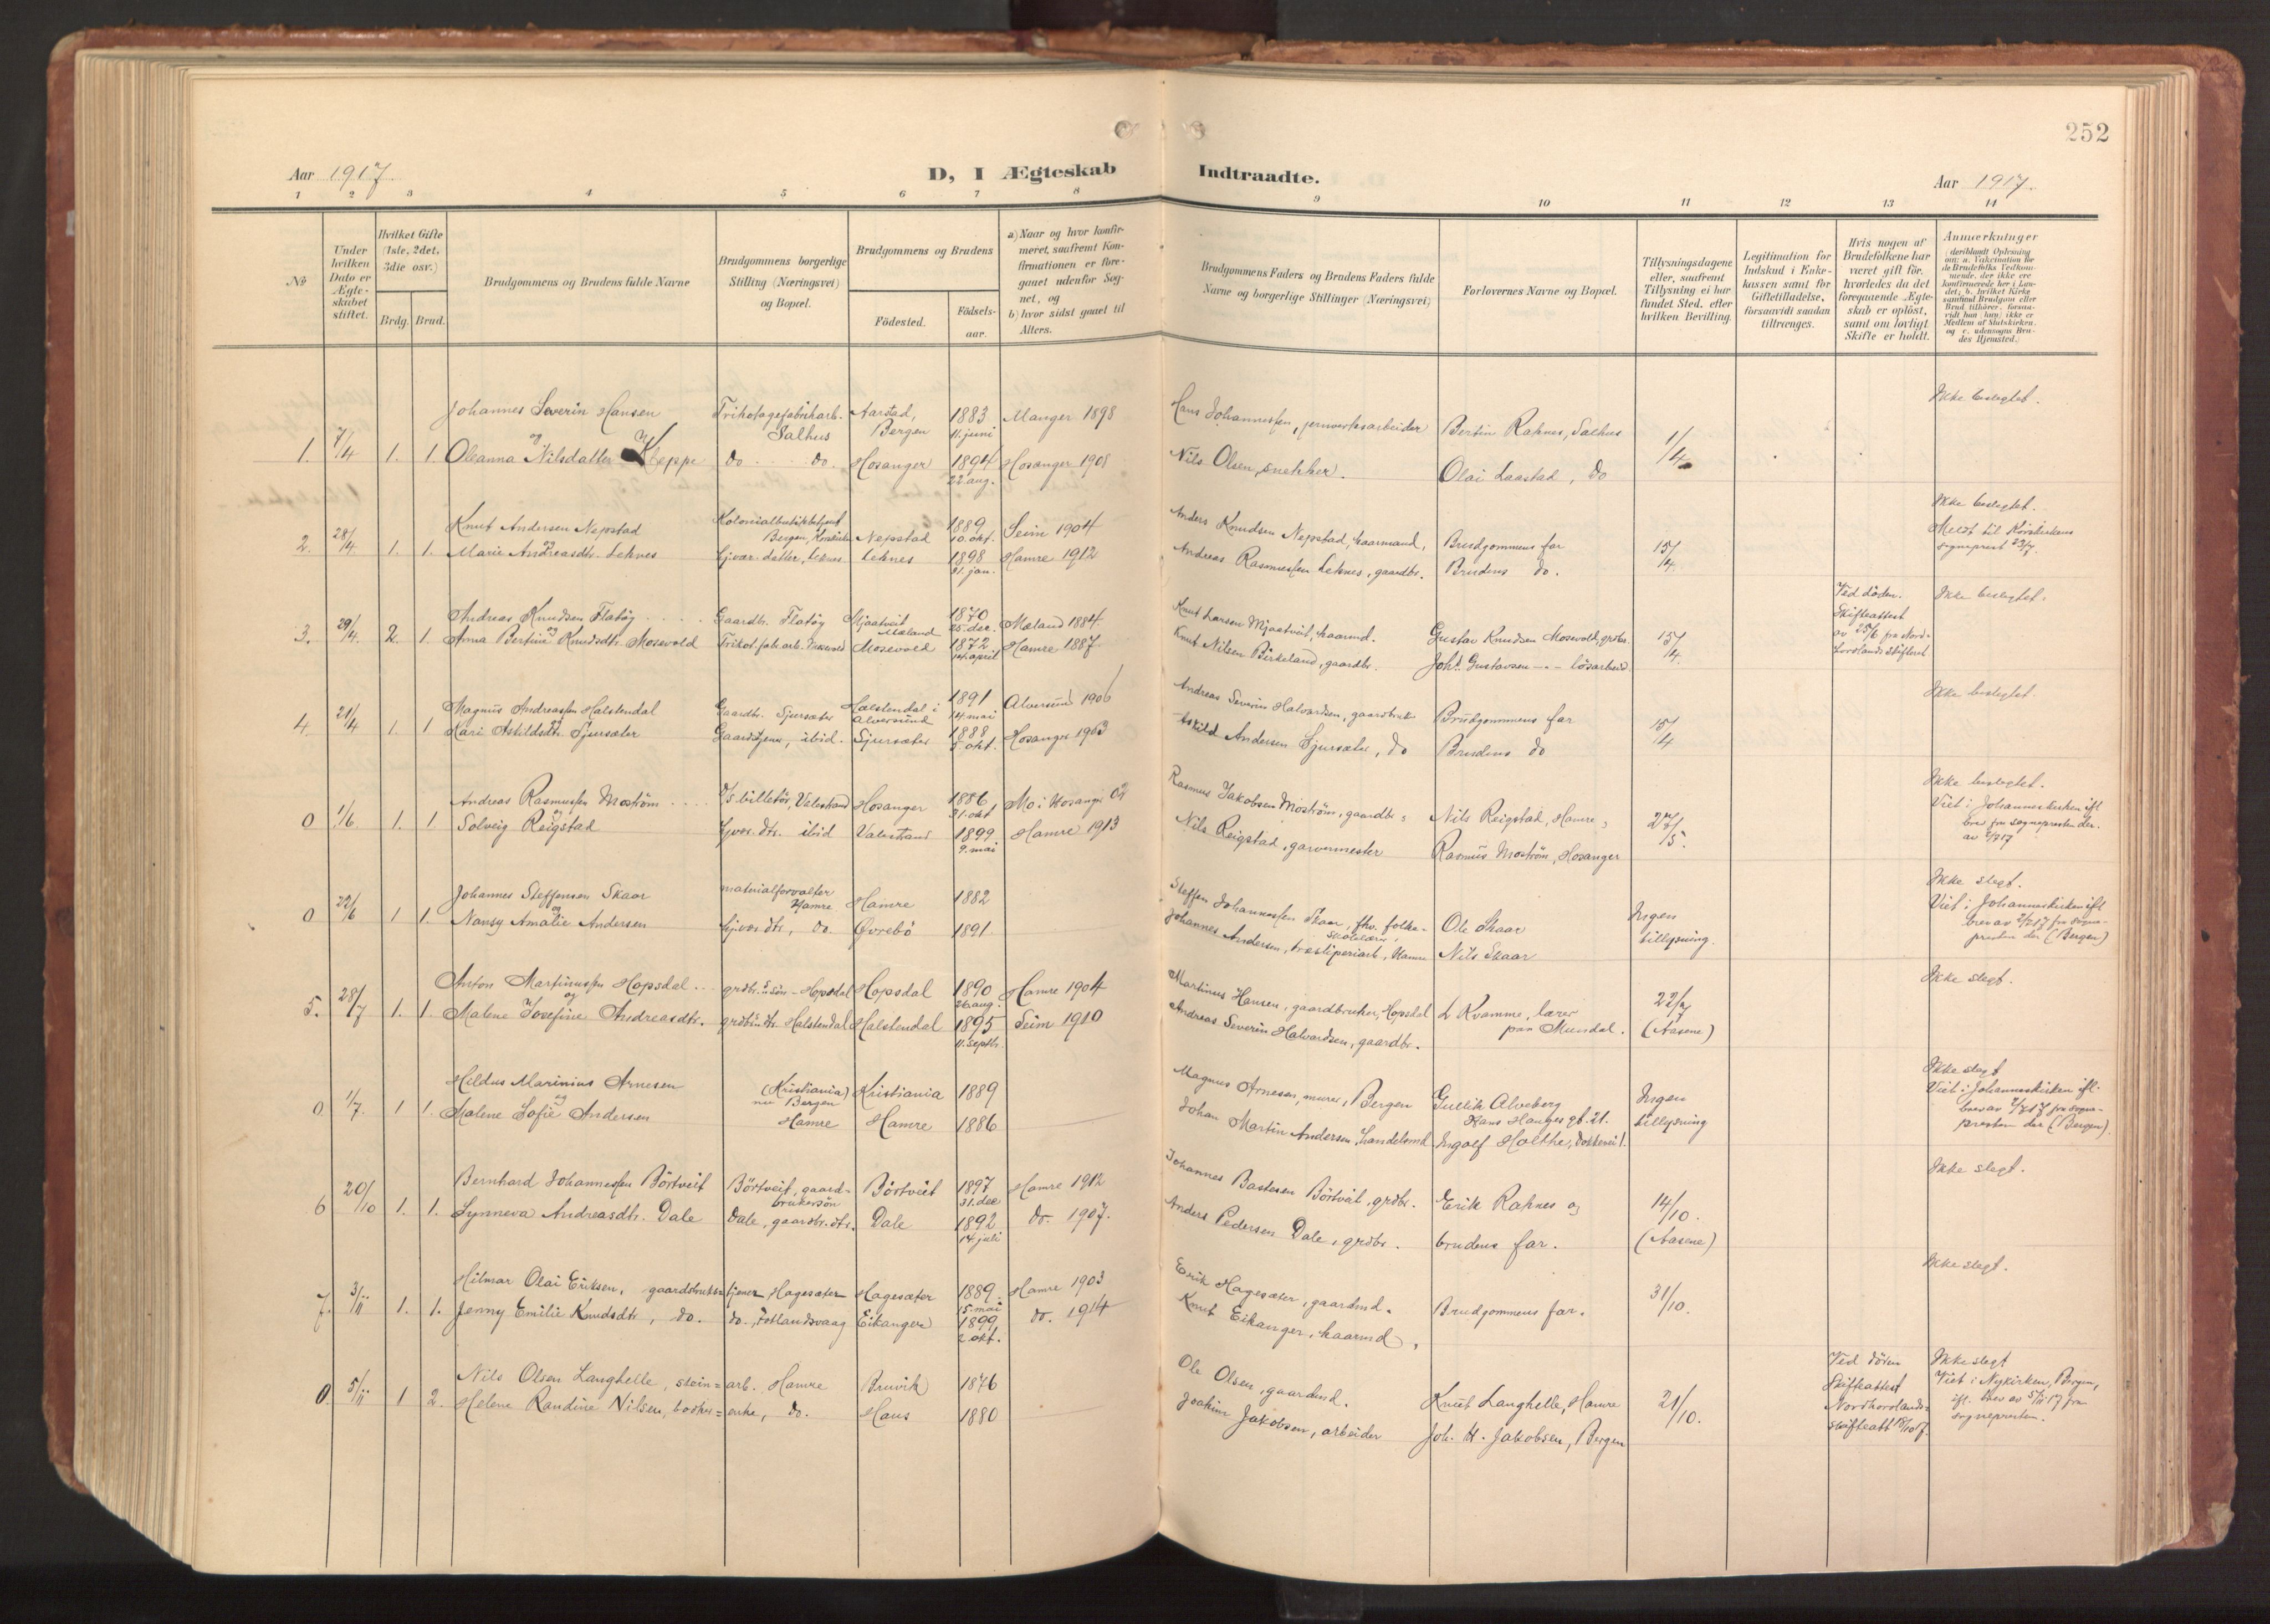 252
Aar 1917.
D, I Ægteskab
Indtraadte.
Aar 1917.
1 2 3 4 5 6 7 8 9 10 11 12 13 14
No
Under hvilken Dato er Ægteskabet stiftet.
Hvilket Gifte (1ste, 2det, 3die osv.)
Brdg. Brud.
Brudgommens og Brudens fulde Navne
Brudgommens borgerlige Stilling (Næringsvei) og Bopæl.
Brudgommens og Brudens
Födested.
Födsels-aar.
a) Naar og hvor konfirmeret, saafremt Konfirmationen er foregaaet udenfor Sognet, og
b) hvor sidst gaaet til Alters.
Brudgommens Faders og Brudens Faders fulde Navne og borgerlige Stillinger (Næringsvei)
Forlovernes Navne og Bopæl.
Tillysningsdagene eller, saafremt Tillysning ei har fundet Sted, efter hvilken Bevilling.
Legitimation for Indskud i Enkekassen samt for Giftetilladelse, forsaavidt saadan tiltrænges.
Hvis nogen af Brudefolkene har været gift för, hvorledes da det foregaaende Ægteskab er oplöst, samt om lovligt Skifte er holdt.
Anmærkninger
1. 7/4 1. 1. Johannes Severin Hansen
og
Oleanna Nilsdatter Kleppe
Trikotagefabrikarb. Salhus
do do.
Aarstad, Bergen 1883 11. juni Manger 1898
Hosanger 1894 22 aug. Hosanger 1908
Hans Johannessen, jernverksarbeider
Nils Olsen, snekker.
Bertin Rahnes, Salhus
Olai Laastad, do
1/4
Ikke beslegtet.
2. 28/4 1. 1. Knut Andersen Nepstad
og
Marie Andreasdtr. Leknes
Kolonialbutikbetjent Bergen,
Gjvær. datter, Leknes.
Nepstad 1889 10. okt. Seim 1904
Leknes 1898 31. jan. Hamre 1912
Anders Knudsen Nepstad, kaarmand,
Andreas Rasmussen Leknes, gaardbr.
Brudgommens far
Brudens do.
15/4
Ikke beslegtet.
Meldt til Korskirkens sogneprest 23/7.
3. 29/4. 2. 1. Andreas Knudsen Flatöy
og
Anna Bertine Knudsdtr. Mosevold
Gaardbr. Flatöy
Trikot. fabr. arb. Mosevold
Mjaatveit Mæland 1870 25. dec. Mæland 1884
Mosevold 1872 14. april Hamre 1887.
Knut Larsen Mjaatveit, kaarmd.
Knut Nilsen Birkeland, gaardbr.
Gustav Knudsen Mosevold, grdbr.
Johs. Gustavsen - - lösarbeid
15/4.
Ved döden. Skifteattest av 25/6 fra Nordhordlands skifteret
Ikke beslegtet.
4. 21/4 1. 1 Magnus Andreassen Halstendal
og
Kari Askildsdtr. Sjursæter
Gaardbr. Sjursæter
Gaardtjener, ibid.
Halstendal i Alversund 1891 14. mai Alversund 1906
Sjursæter 1888 5 okt. Hosanger 1903
Andreas Severin Halvardsen, gaardbruk
Askild Andersen Sjursæter, do
Brudgommens far
Brudens do
15/4
Ikke beslegtet.
0 1/6. 1. 1. Andreas Rasmussen Moström
og
Solveig Reigstad
D/S billetör, Valestrand
Gjvær. dtr. ibid
Hosanger 1886 31. okt Mo i Hosanger 02
Valestrand 1899 9. mai Hamre 1913
Rasmus Jakobsen Moström, gaardbr.
Nils Reigstad, garvermester
Nils Reigstad, Hamre,
Rasmus Moström, Hosanger
27/5.
Ikke beslegtet.
Viet i Johanneskirken ifl brev fra sognepresten der. av 2/7 17
0 22/6 1 1. Johannes Steffensen Skaar
og
Nansy Amalie Andersen
materialforvalter Hamre
Gjvær. dtr., do.
Hamre 1882
Øvrebö 1891
Steffen Johannessen Skaar, fhv. folkeskolelærer,
Johannes Andersen, træsliperiarb., Hamre
Ole Skaar
Nils Skaar
Ingen tillysning.
Ikke slegt.
Viet i Johanneskirken ifl brev av 2/7 17 fra sognepresten der (Bergen)
5. 28/7 1. 1 Anton Martinussen Hopsdal
og
Malene Josefine Andreasdtr.
grdbr. sön - Hopsdal
grdbr. dtr. Halstendal
Hopsdal 1890 26 aug. Hamre 1904
Halstendal 1895 11. septbr. Seim 1910
Martinus Hansen, gaardbruker, Hopsdal
Andreas Severin Halvardsen, gaardbr.
L Kvamme, lærer paa Mundal.
22/7 (Aasene)
Ikke slegt.
0 1/7. 1 1. Hildus Marinius Arnesen
og
Malene Sofie Andersen
(Kristiania) nu Bergen
Hamre
Kristiania 1889
Hamre 1886
Magnus Arnesen, murer, Bergen
Johan Martin Andersen, handelsmd
Gullik Alveberg Hans Hauges gt. 21.
Ingolf Holthe, Dokkevei 1.
Ingen tillysning
Ikke slegt
Viet i Johanneskirken ifl. brev av 2/7 17 fra sognepresten der (Bergen).
6 20/10 1. 1. Bernhard Johannessen Börtveit
Synneva Andreasdtr. Dale
Börtveit, gaardbrukersön
Dale, gaardbr. dtr.
Börtveit 1897 31. dec Hamre 1912
Dale 1892 14. juli do. 1907.
Johannes Bastesen Börtveit, grdbr.
Anders Pedersen Dale, grdbr.
Erik Rahnes og
brudens far.
14/10. (Aasene)
Ikke slegt.
7. 3/11 1. 1. Hilmar Olai Eriksen, gaardsbruker
Jenny Emilie Knudsdtr, do.
tjener Hagesæter
do., Fotlandsvaag
Hagesæter 1889. 15. mai Hamre 1903
Eikanger 1899 2. okt. do. 1914
Erik Hagesæter, gaardmd.
Knut Eikanger, kaarmd.
Brudgommens far.
31/10.
Ikke slegt.
0. 5/11 1 2. Nils Olsen Langhelle, stein=arb. Hamre
Helene Randine Nilsen, bødker=enke, do.
Bruvik 1876
Haus 1880
Ole Olsen, gaardmd.
Joakim Jakobsen, arbeider
Knut Langhelle, Hamre
Joh. H. Jakobsen, Bergen
21/10.
Ved döden Skifteattest Nordhordlands=skifteatt 18/10 17.
Ikke slegt
Viet i Nykirken, Bergen, ifl. brev av 5/11 17 fra sognepresten.